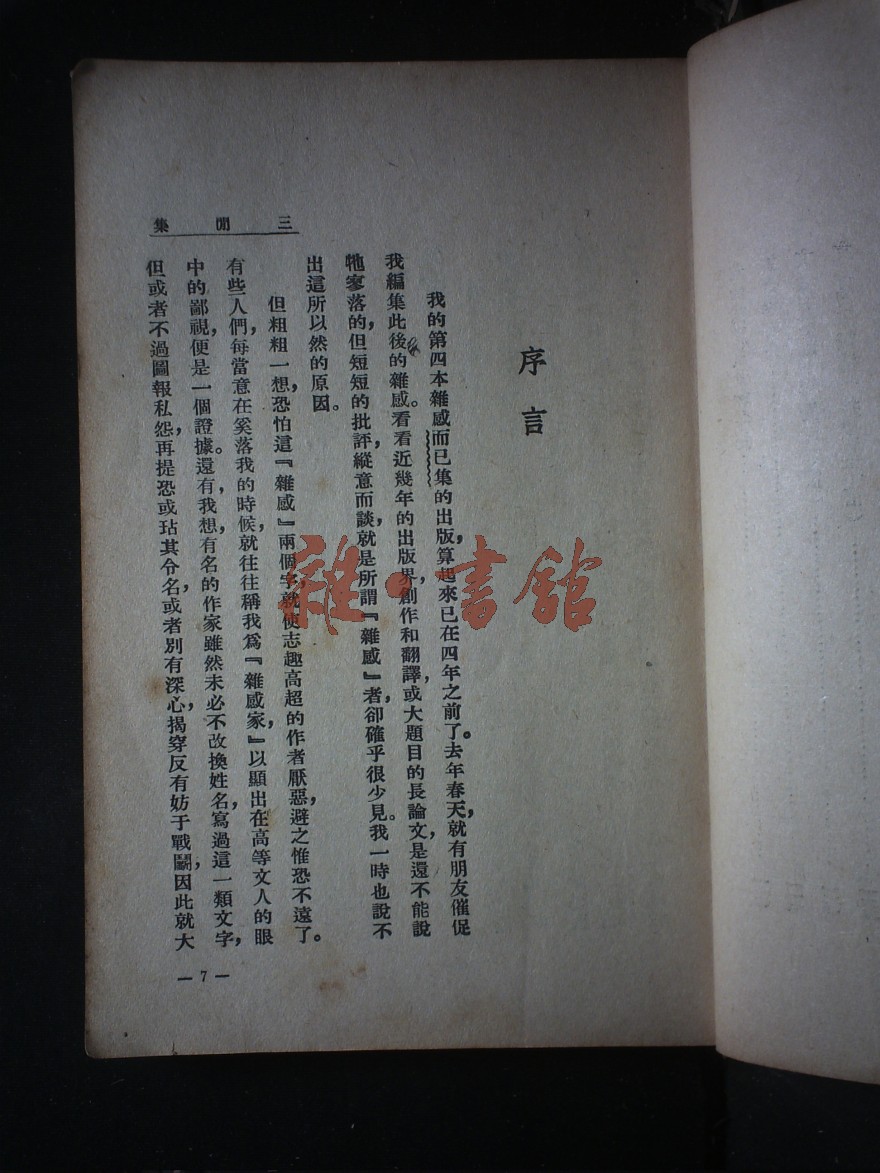 三閒集
序言
我的第四本雜感而已集的出版，算起來已在四年之前了。去年春天，就有朋友催促
我編集此後的雜感。看看近幾年的出版界，創作和翻譯，或大題目的長論文，是還不能說
牠寥落的，但短短的批評，縱意而談，就是所謂『雜感』者，卻確乎很少見。我一時也說不
出這所以然的原因。
但粗粗一想，恐怕這『雜感』兩個字，就使志趣高超的作者厭惡，避之惟恐不遠了。
有些人們，每當意在奚落我的時候，就往往稱我爲『雜感家』，以顯出在高等文人的眼
中的鄙視，便是一個證據。還有，我想，有名的作家雖然未必不改換姓名，寫過這一類文字，
但或者不過圖報私怨，再提恐或玷其令名，或者別有深心，揭穿反有妨于戰鬭，因此就大
— 7 —
雜·書館